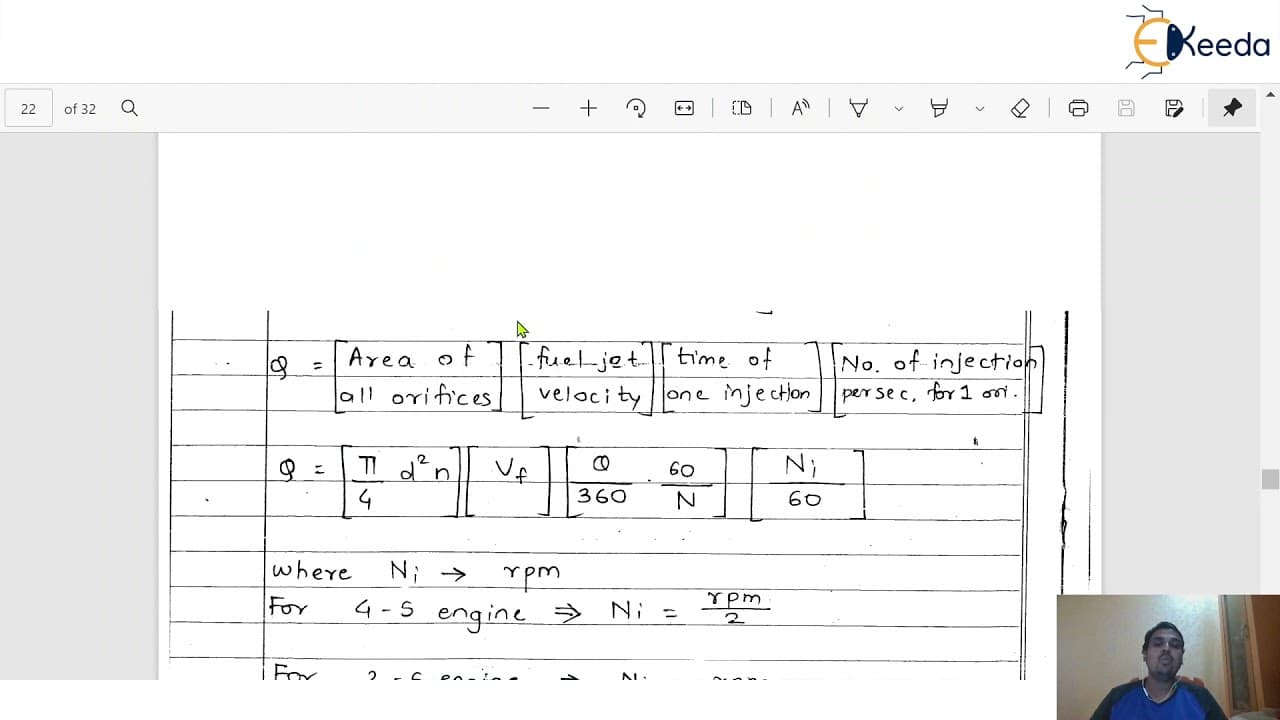 EKeeda
22 of 32
Q = [Area of all orifices] [fuel jet velocity] [time of one injection] [No. of injection per sec, for 1 ori.]
Q = [π/4 d²n] [Vf] [θ/360 . 60/N] [Ni/60]
where Ni → rpm
For 4-S engine ⇒ Ni = rpm/2
For